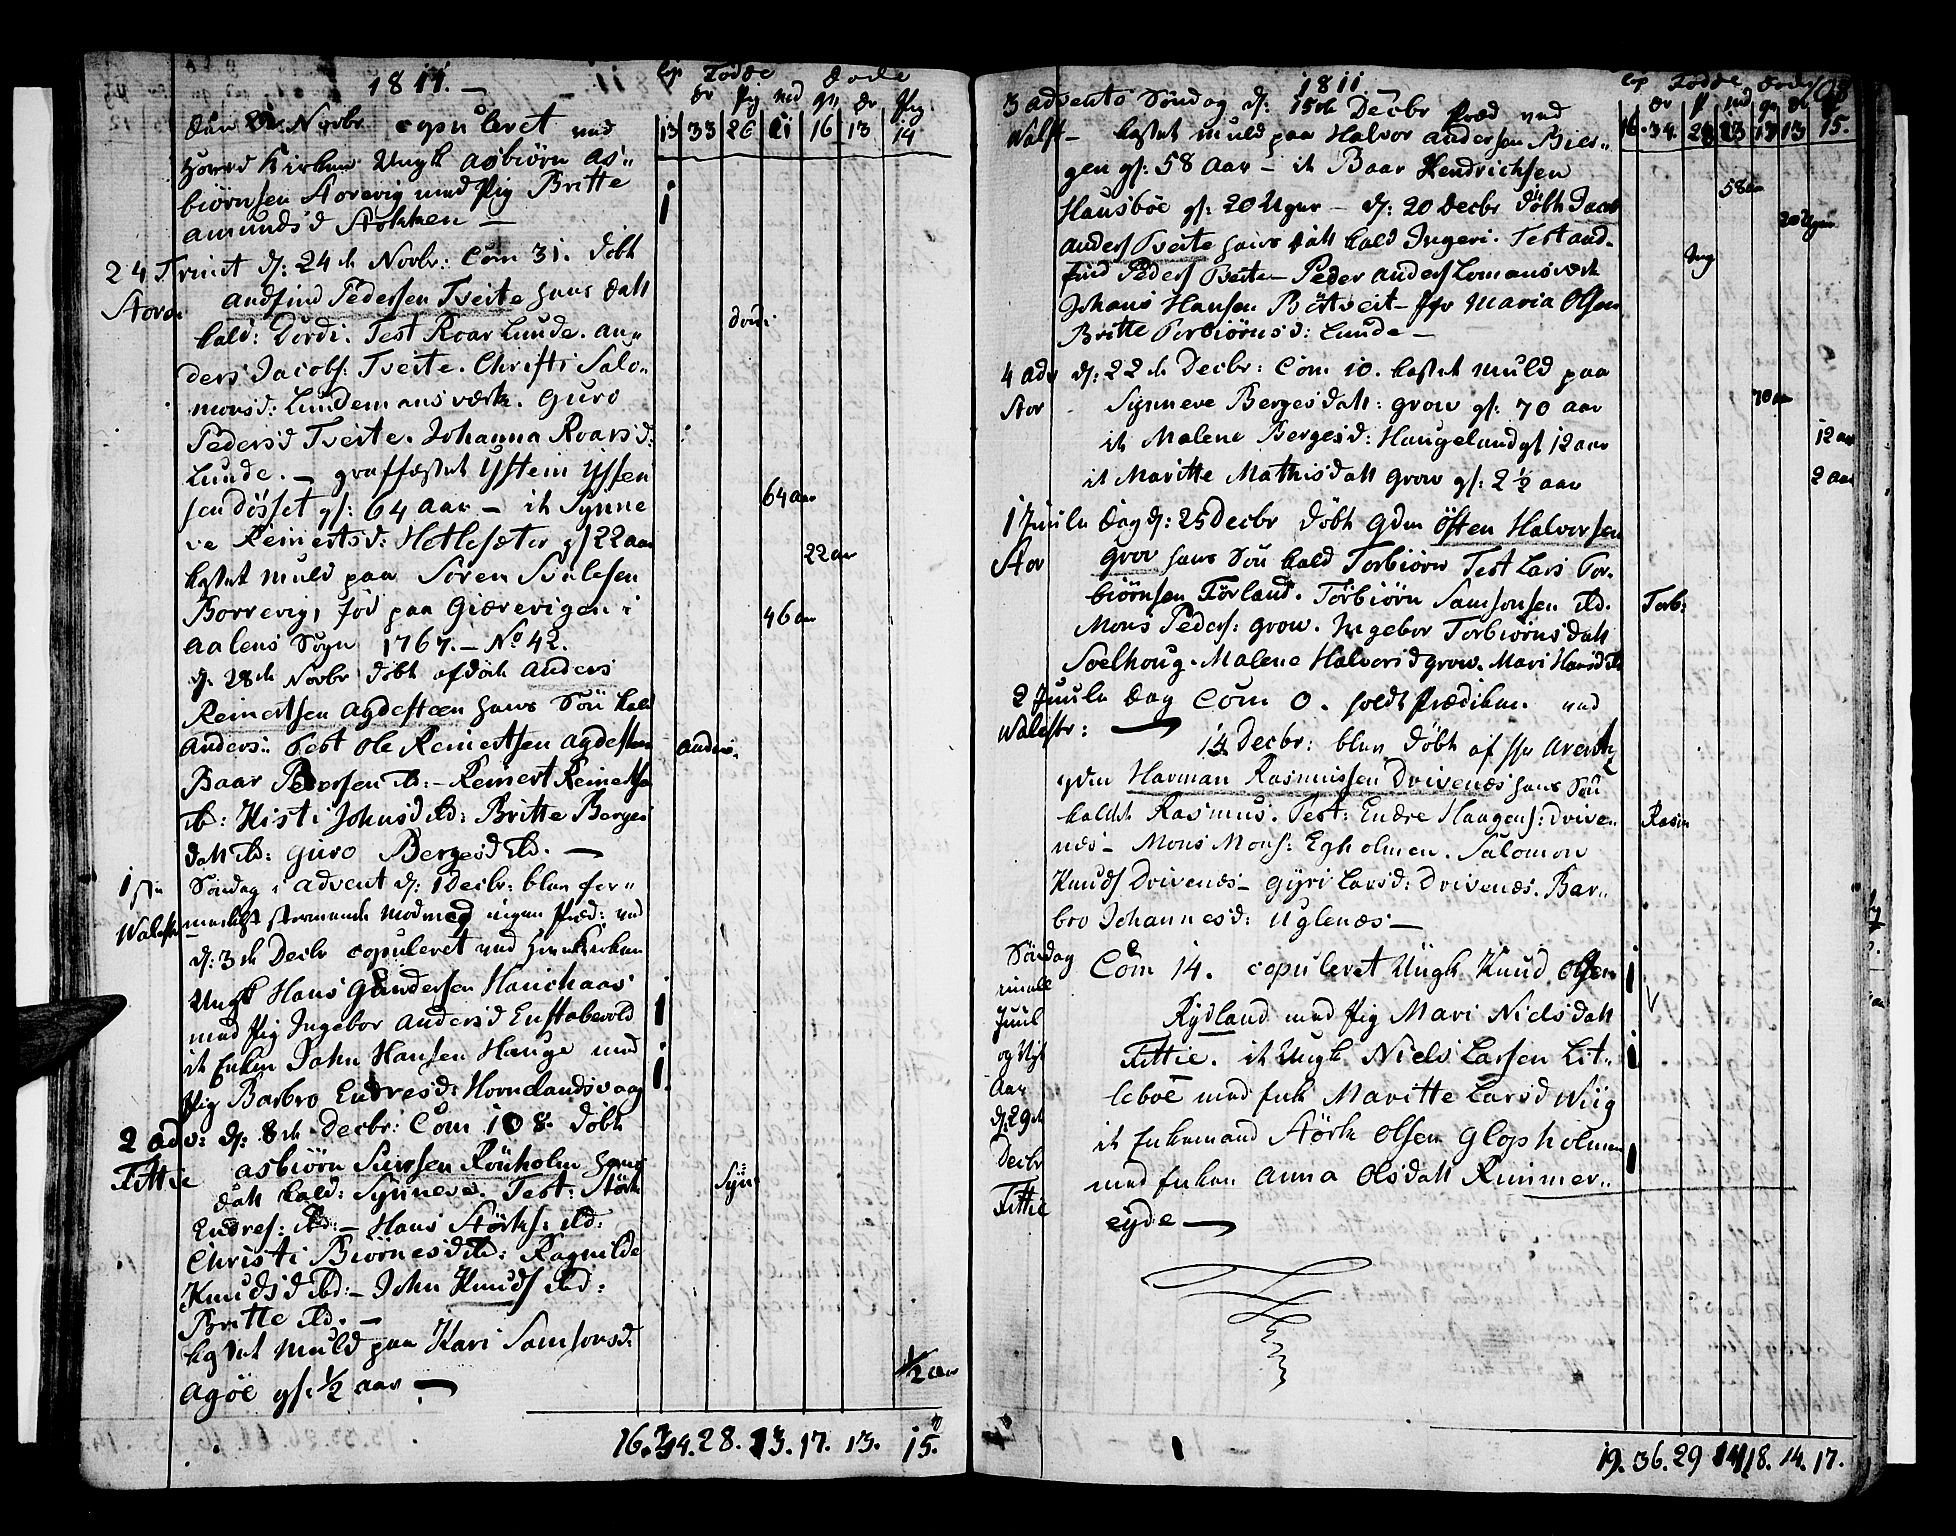 1811. –
Cop Fødde Døde
Dr Pig Md Qv Dr Pig
13 33 26 11 16 13 14
Novbr copuleret ved
Kirken Ungk Asbiørn As=
biørnsen Aarevig med Pig Britte
Amundsd Stokken –
24 Trinit d: 24de Novbr: Com 31. døbt
Stor
Andfind Pedersen Tveite hans Datt
kald: Dordi. Test Roar Lunde. An=
ders Jacobs: Tveite. Christi Salo=
monsd: Lundemansværk. Guro
Pedersd Tveite. Johanna Roarsd:
Lunde. – graffæstet Ystein
gl: 64 Aar – it Synne
ve Reinertsd: Hetlesæter gl 22 aar
kastet Muld paa Søren
Borrevig, fød paa Giærevigen i
Aalens Sogn 1767. – No 42.
d: 28de Novbr døbt Anders
Reinertsen Agdesteen hans Søn kald
Anders: Test Ole Reinertsen Agdesteen
Baar Pedersen ibd: – Reinert Reinertsen
ib: Kisti Johnsd ibd: Britte Berges
datt ibd: Guro Bergesd ibd. –
Søndag i Advent d: 1 Decbr: blev for=
Walestr
ingen Præd: ved
d: 3de Decbr copuleret ved
Ungk Hans Gundersen
med Pig Ingebor Andersd Enstabevold
it Enkem John Hansen Hauge med
Pig Barbro Endresd: Hornelandsvaag
2 Adv: d: 8de Decbr: Com 108. døbt
Fittie
Asbiørn Rönholm hans
datt kald: Synneve. Test: Størk
Endres: ibd: – Hans Størks: ibd:
Christi Biørnesd ibd: Ragnilde
Knudsd ibd: – John Knuds ibd:
Britte ibd. –
kastet Muld paa Kari Samsonsd:
Agöe gl: ½ aar –
Dordi
64 aar
22 aar
46 aar
Anders.
Syn
½ aar
16. 34. 28. 13. 17. 13. 15.
1811
Cop Fødde Døde
16. 34. 28 13 17 13 15.
3 Advents Søndag d: 15de Decbr Præd ved
Walest – kastet Muld paa Halvor Andersen Bier=
gen gl: 58 Aar – it Baar Hendrichsen
Hausböe gl: 20 Uger – d: 20 Decbr döbt Jacob
Anders Tveite hans datt kald Ingeri. Test And=
find Peders Tveite – Peder Anders Lomansværk
Johans Hansen – Maria Olsen
Britte Torbiørnsd: Lunde –
4 Adv d: 22de Decbr: Com 10. kastet Muld paa
Stor
Synneve Berges datt: Grov gl: 70 Aar
it Malene Bergesd: Haugeland gl 12 aar
it Maritte Mathisdatt Grov gl: 2 ½ aar
1 Juule Dag d: 25 Decbr döbt gdm Östen Halvorsen
Stor
Grov hans Søn kald Torbiørn Test Lars Tor=
biörnsen Förland. Törbiörn Samsonsen ibd.
Mons Peders: Grov. Ingebor Torbiörnsdatt
Soelhoug. Malene Halvorsd Grov. Mari Hansd ibd
2 Juule Dag Com 0. holdt Prædiken ved
Walestr: –
14. Decbr: blev döbt af Hr Arentz
gdm Harman Rasmussen Drivenæs hans Søn
kaldt Rasmus. Test: Endre Haagens: Drive=
næs – Mons Mons: Egholmen. Salomon
Knuds Drivenæs – Gyri Larsd: Drivenæs. Bar=
bro Johannesd: Uglenæs –
Søndag
imell
Juul
og Nyt
Aar
d: 29de
Decbr
Fittie
Com 14. copuleret Ungk Knud Olsen
Rydland med Pig Mari Nielsdatt
Fittie. it Ungk Niels Larsen Lit=
leböe med Enk Maritte Larsd Wiig
it Enkemand Störk Olsen Glopholmen
med Enken Anna Olsdatt Rimmer=
eyde –
58 aar
20 Uger
Ing
70 aar
12 aar
2 aar
Torb:
Rasm
19. 36. 29 14 18. 14. 17.